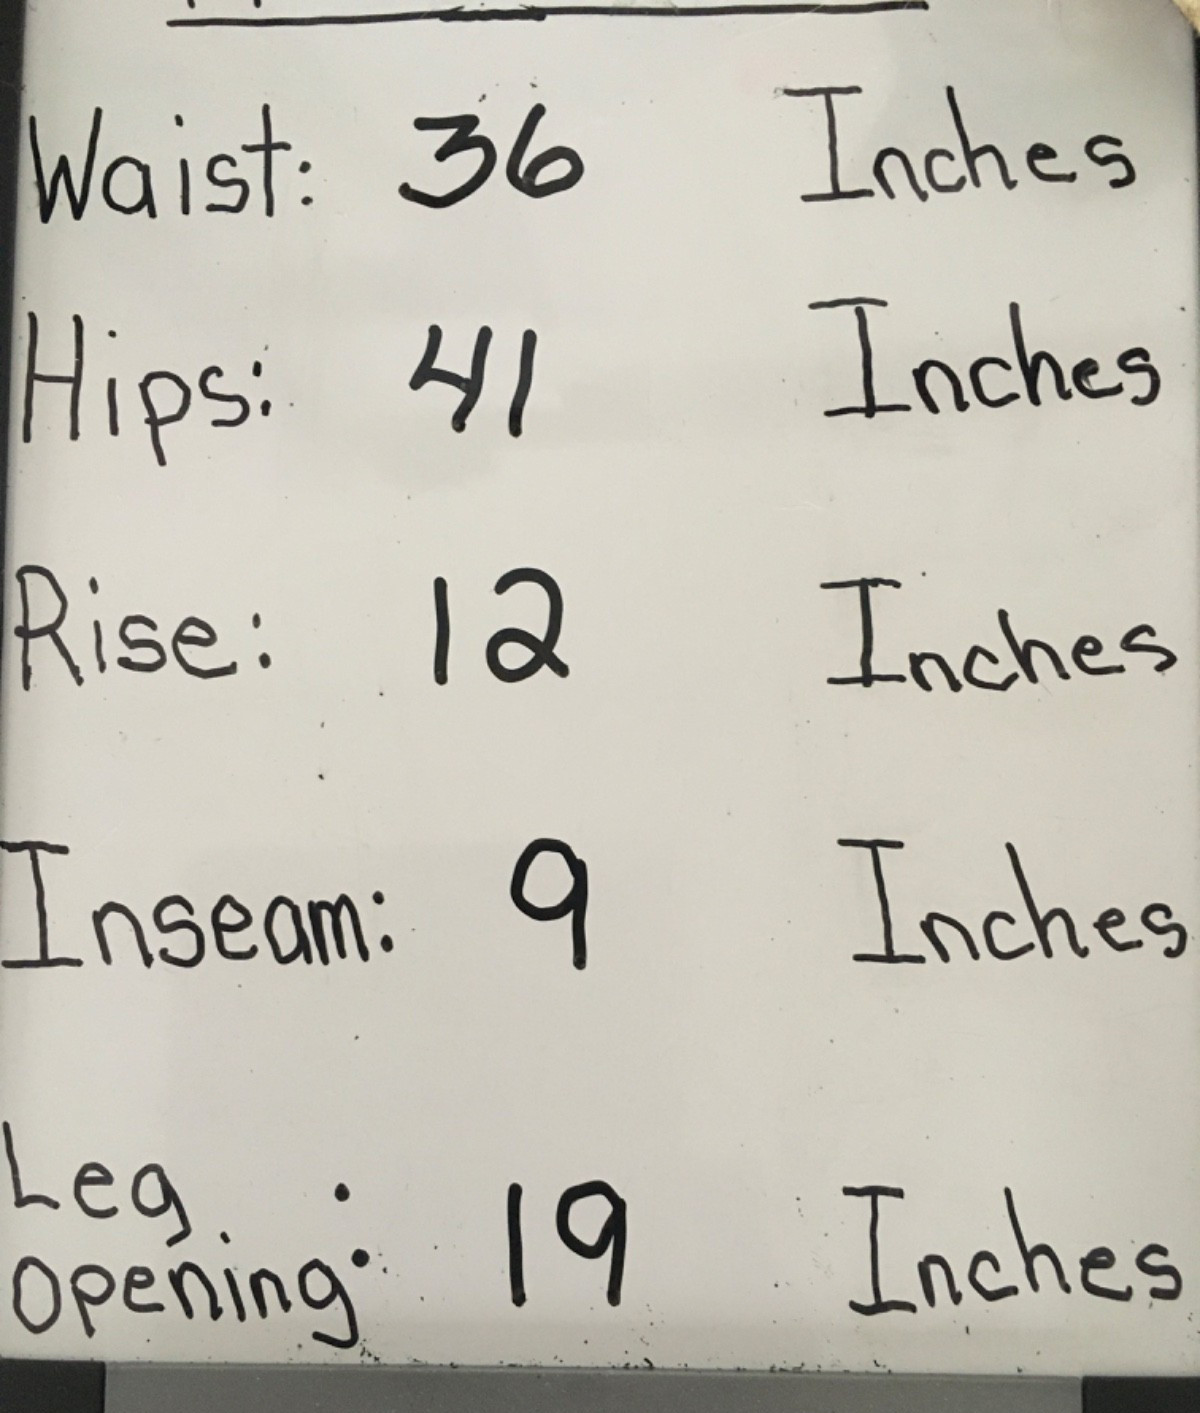 Waist: 36 Inches
Hips: 41 Inches
Rise: 12 Inches
Inseam: 9 Inches
Leg
Opening: 19 Inches